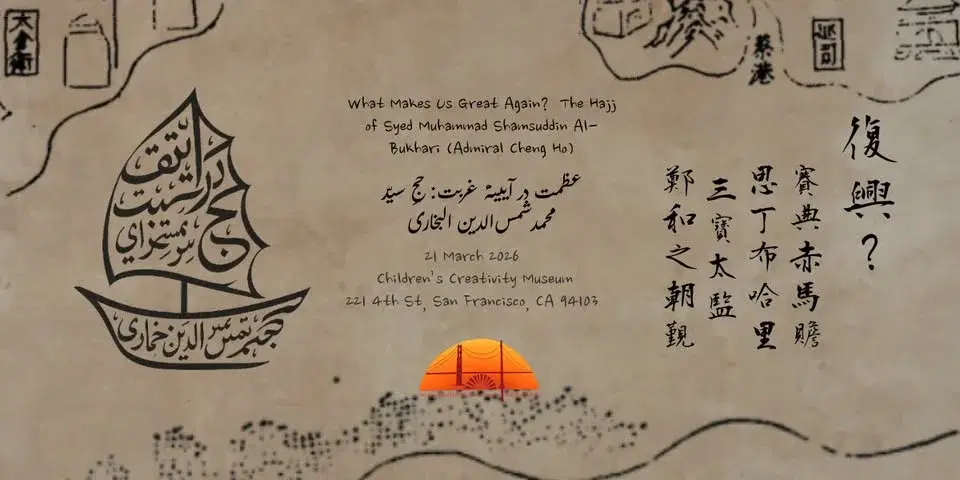 太倉衛
蔡港
巡司
What Makes Us Great Again? The Hajj
of Syed Muhammad Shamsuddin Al-
Bukhari (Admiral Cheng Ho)
عظمت در آیینهٔ غربت: حج سیّد
محمد شمس الدین البخاری
21 March 2026
Children's Creativity Museum
221 4th St, San Francisco, CA 94103
復興？
賽典赤馬贍
思丁布哈里
三寶太監
鄭和之朝覲